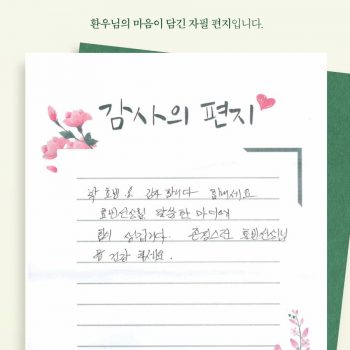 환우님의 마음이 담긴 자필 편지입니다.
감사의 편지
박 효빈 님 감사 합니다 올해세요
효빈선생님 말씀 한 마디에
힘이 생깁니다. 존경스런 효빈선생님
늘 건강 하세요.